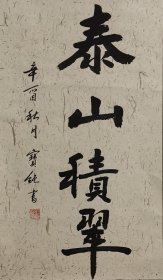 泰山積翠
辛酉秋月寶純書